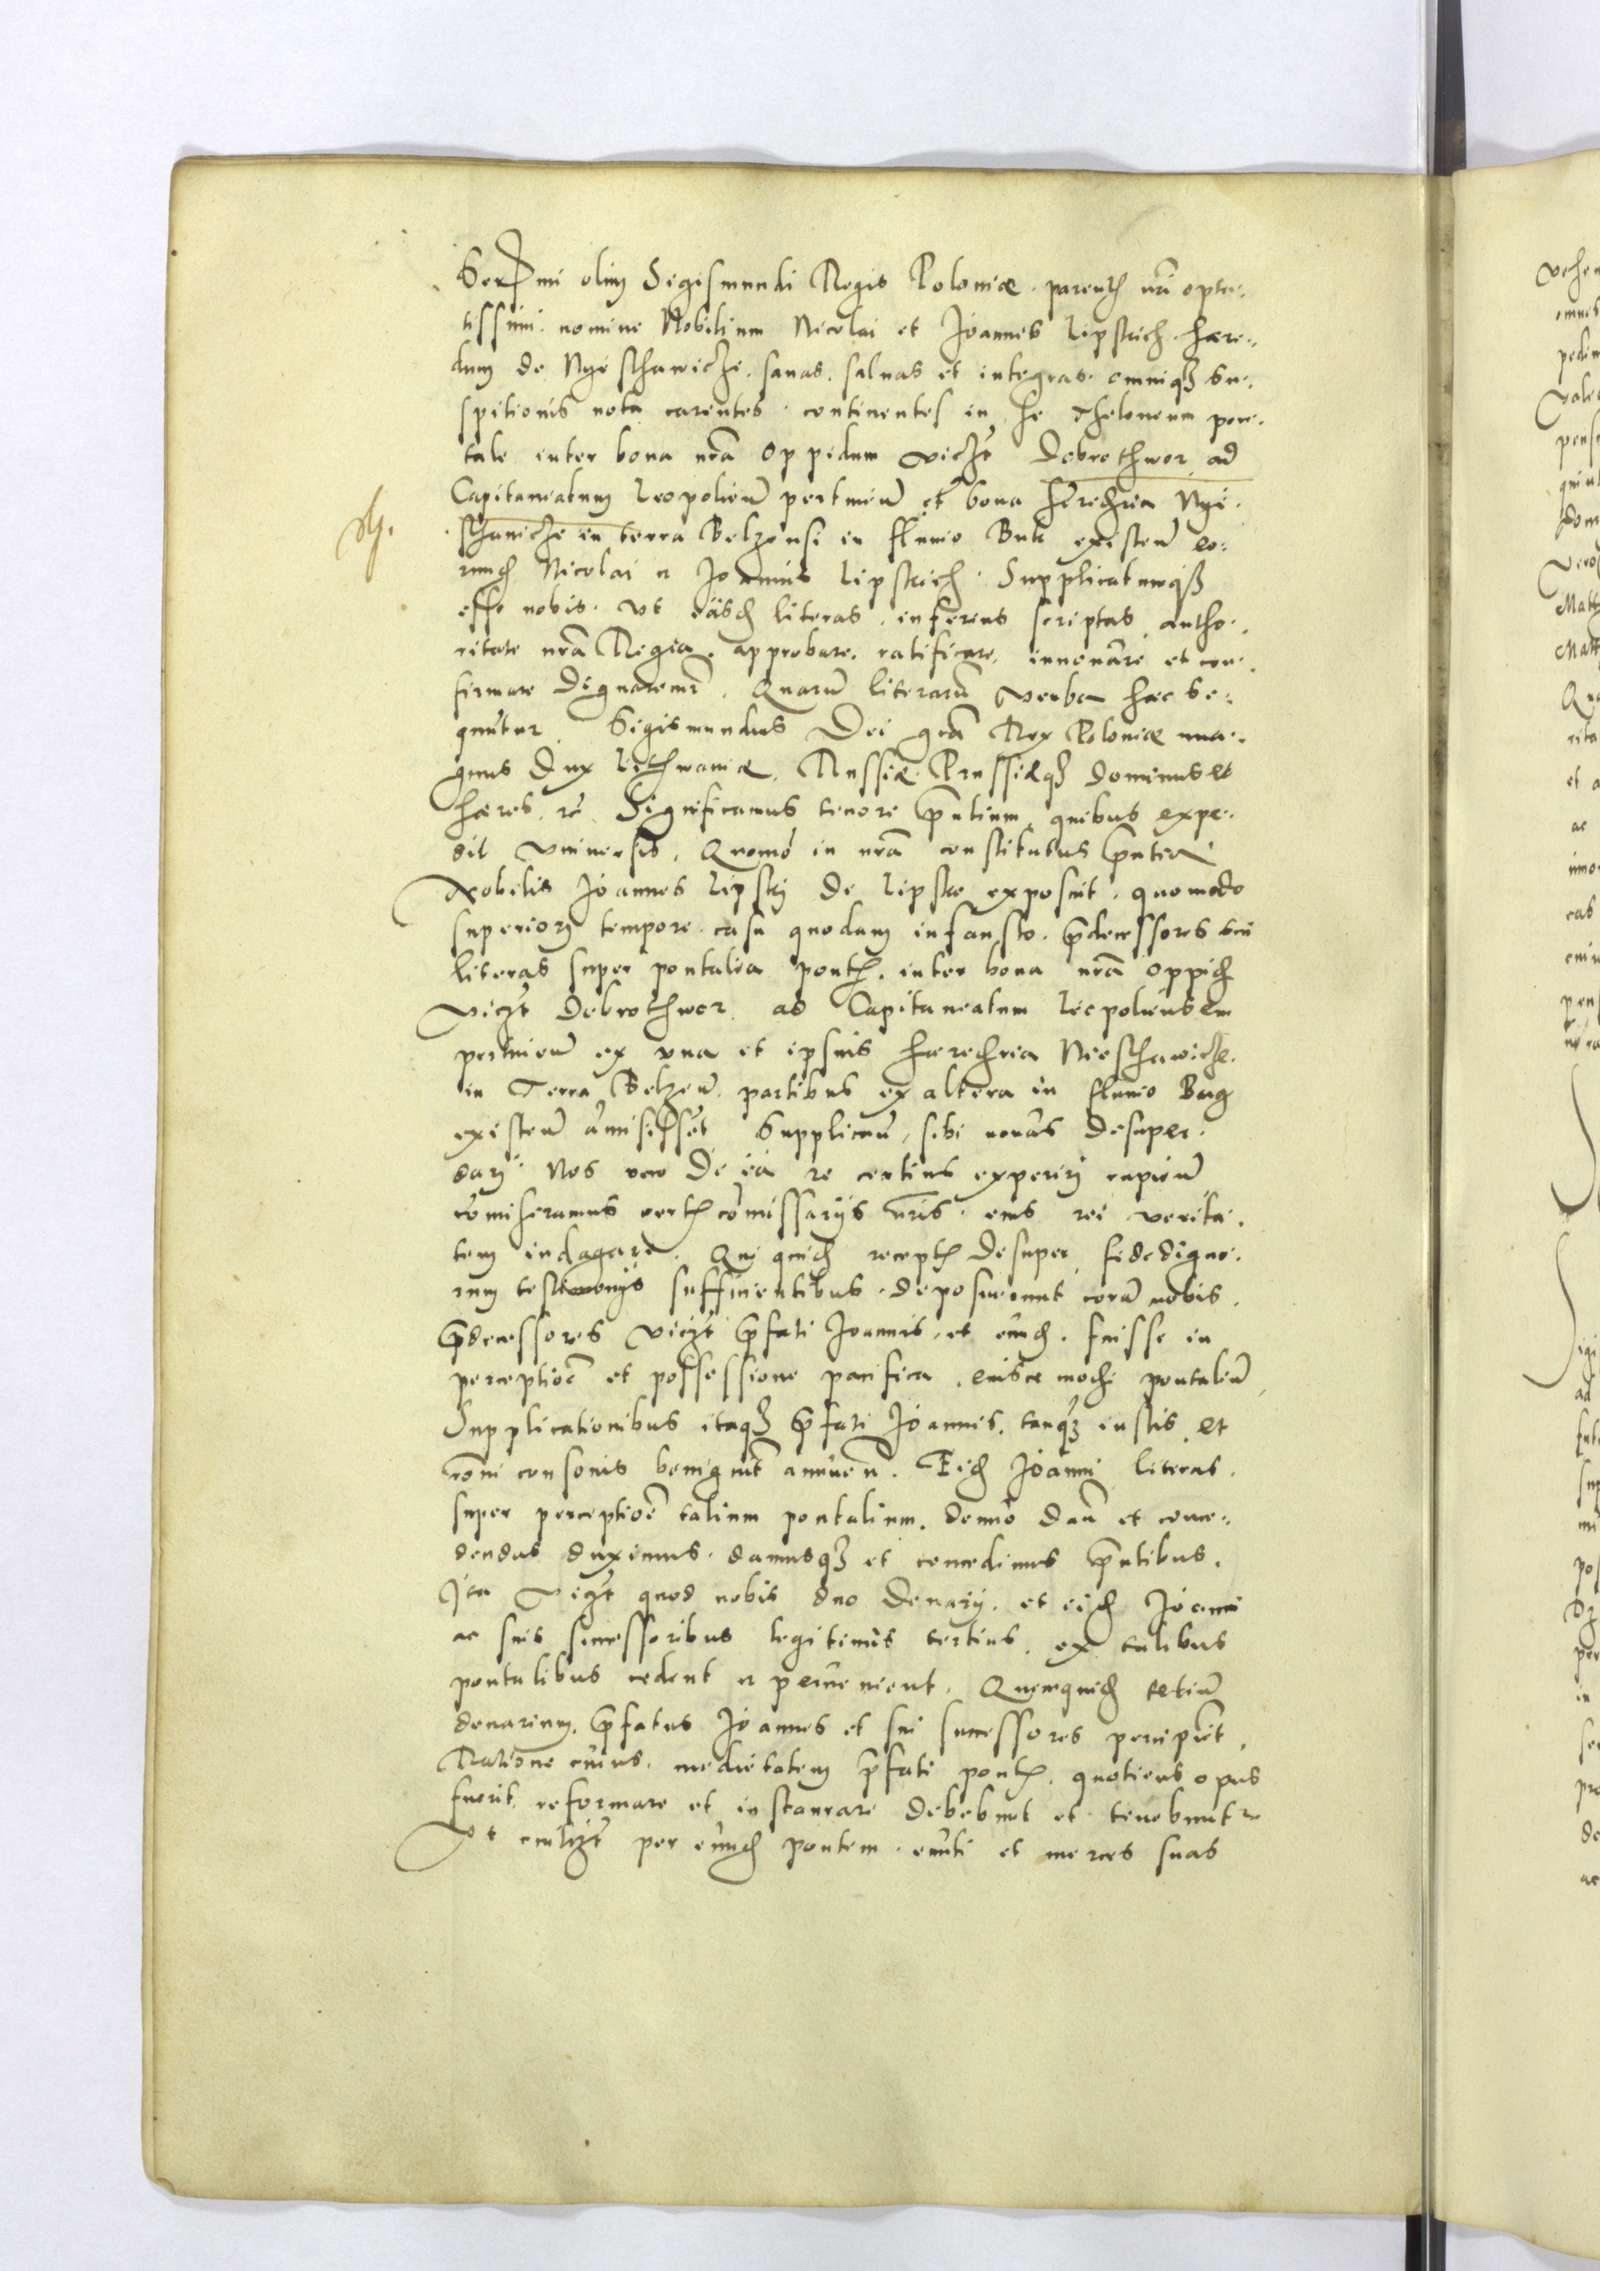 Serẽmi olim Sigismundi Regis Poloniæ parentꝭ nrĩ opta-
tissimi nomine Nobilium Nicolai et Joannes Lipskich hære-
dum de Nyeschawicze, sanas, saluas et integras omniqȝ su-
spitionis nota carentes, continentes in se Theloneum pon-
tale inter bona nrã Oppidum viczt Dobrothwor ad
Capitaneatum Leopolien̄ pertinen̄ et bona hæredria Nye-
schawicze in terra Belzensi in fluuio Buk existen̄ eo-
rundꝭ Nicolai et Joannis Lipskich. Supplicatumqȝ
esse nobis. Vt easdꝭ literas inferius scriptas autho-
ritate nrã Regia, approbare, ratificare, innouare et con-
firmare dignaremr̃. Quarũ literarũ verba hæc se-
quũtur. Sigismundus Dei grã Rex Poloniæ ma-
gnus Dux Lithwaniæ, Russiæ Prussiæqȝ dominus et
hæres, rẽ. Significamus tenore p̃ntium, quibus expe-
dit vniuersis, Quomo in nrã constitutus p̃ntia
Nobilis Joannes Lipsky de Lipsko exposuit, quomodo
superiori tempore casu quodam infausto, p̃decessores sui
literas super pontalia pontꝭ, inter bona nrã oppidꝭ
viczt Dobrothwor ad Capitaneatum Leopoliensem
pertinen̄ ex vna et ipsius hæredria Nieschawicze
in Terra Belzen̄ partibus ex altera in fluuio Bug
existen̄ amisissẽt Supplican̄, sibi nouas desuper
dari. Nos vero de ea re certius experiri cupien̄
comiseramus certꝭ comissarijs nrĩs, eius rei verita-
tem indagare. Qui quidꝭ receptꝭ desuper, fidedigno-
rum testimonijs sufficientibus, deposuerunt corã nobis,
p̃decessores viczt p̃fati Joannis, et eũdꝭ, fuisse in
perceptioẽ et possessione pacifica, eiusce modi pontaliũ,
Supplicationibus itaqȝ p̃fati Joannis, tanqȝ iustis, et
roni consonis benignit̃ annuen̄. Eidꝭ Joanni literas,
super perceptioẽ talium pontalium, denuo dan̄ et conce-
dendas duximus, damusqȝ et concedimus p̃ntibus.
Ita viczt quod nobis duo denarij, et eidꝭ Joanni
ac suis successoribus legitimis tertius, ex talibus
pontalibus cedent et peruenient. Quemquidꝭ tertiũ
denarium, p̃fatus Joannes et sui successores percipiẽt,
Ratione cuius, medietatem p̃fati pontꝭ, quotiens opus
fuerit, reformare et instaurare debebunt et tenebuntr
Vt eulizt per eũndꝭ pontem eũti et merces suas